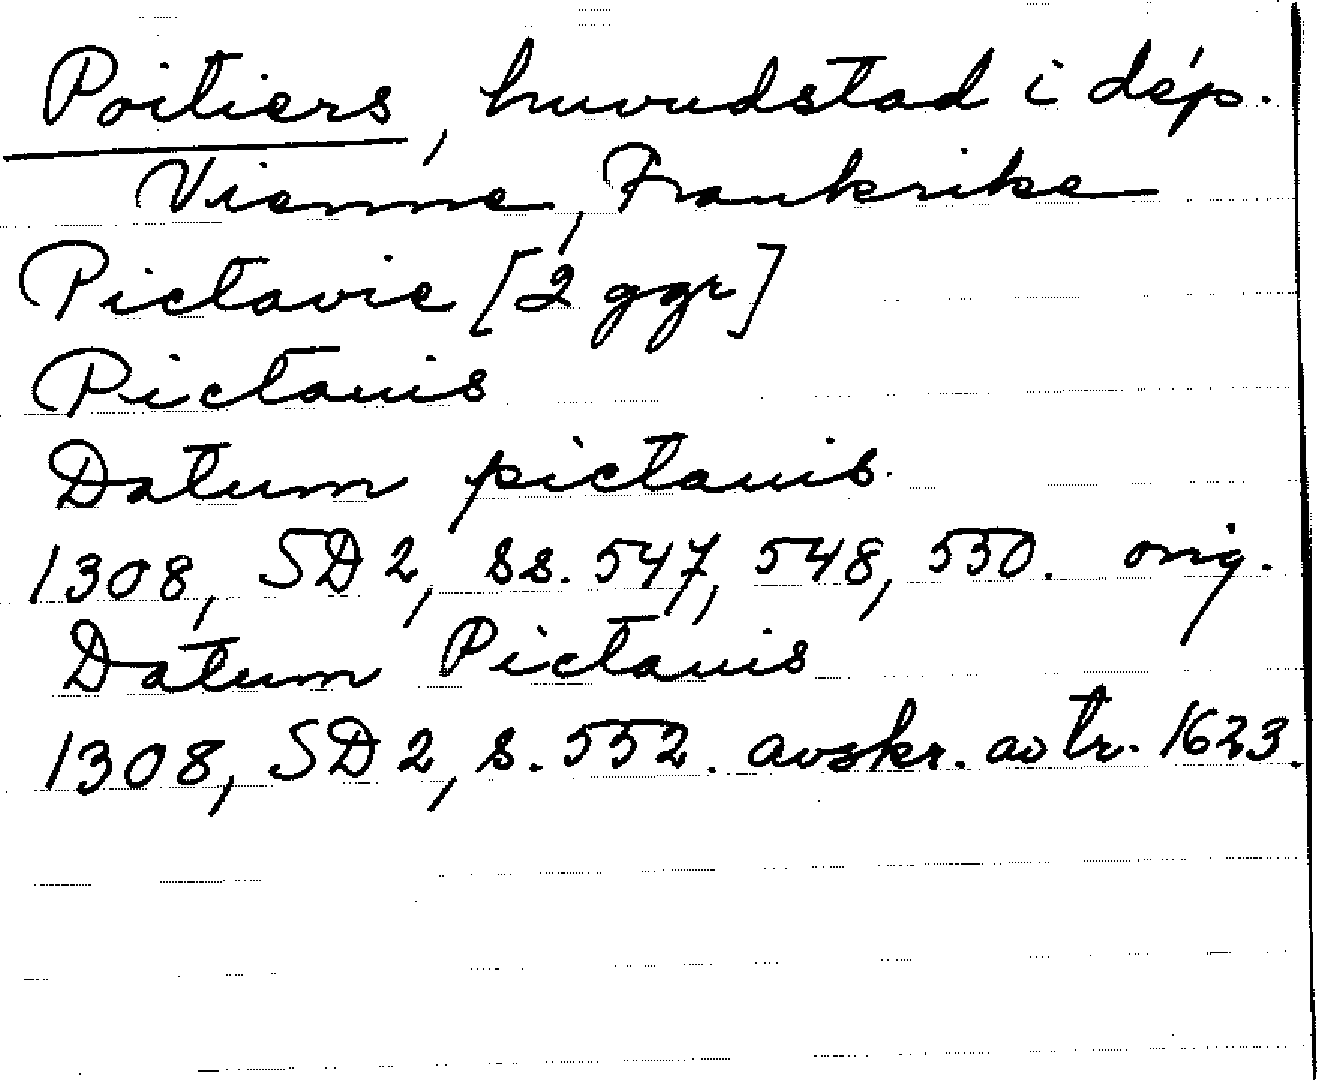 Poitiers, huvudstad i dép.
Vienne, Frankrike
Pictavie [2 ggr]
Pictauis
Datum pictauis.
1308, SD 2, ss. 547, 548, 550. orig.
Datum Pictauis
1308, SD 2, s. 552. avskr. av tr. 1623.